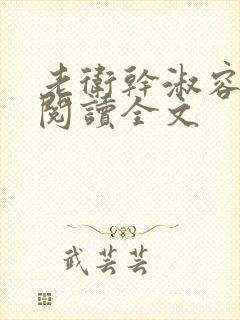 老衛幹淑容
閱讀全文
武芸芸